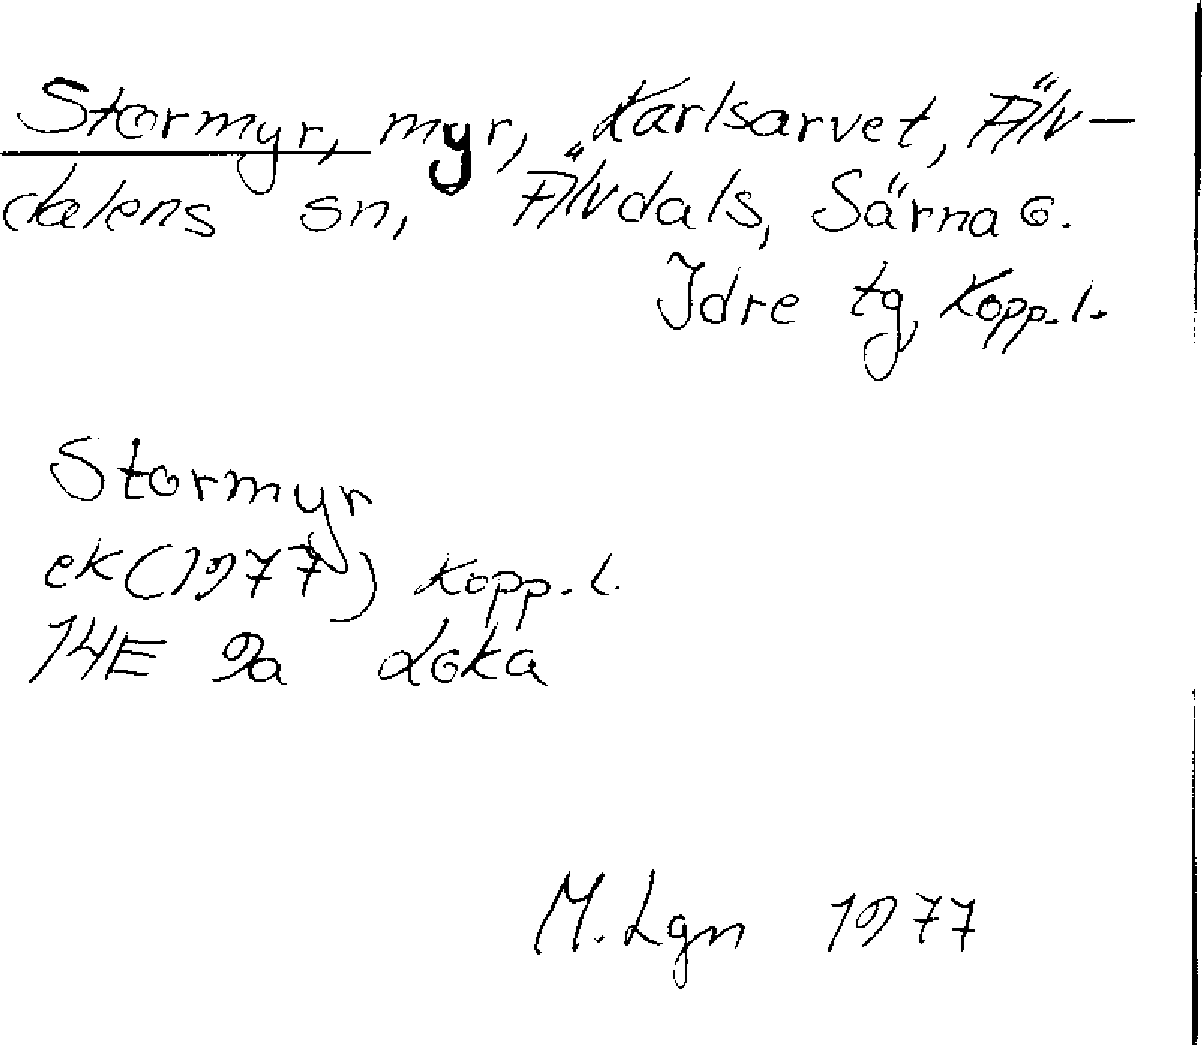 Stormyr, myr, Karlsarvet, Älv-
dalens sn, Älvdals, Särna o.
Idre tg, Kopp. l.
Stormyr
ek (1977) Kopp. l.
14E 9a Loka
M. Lgn 1977